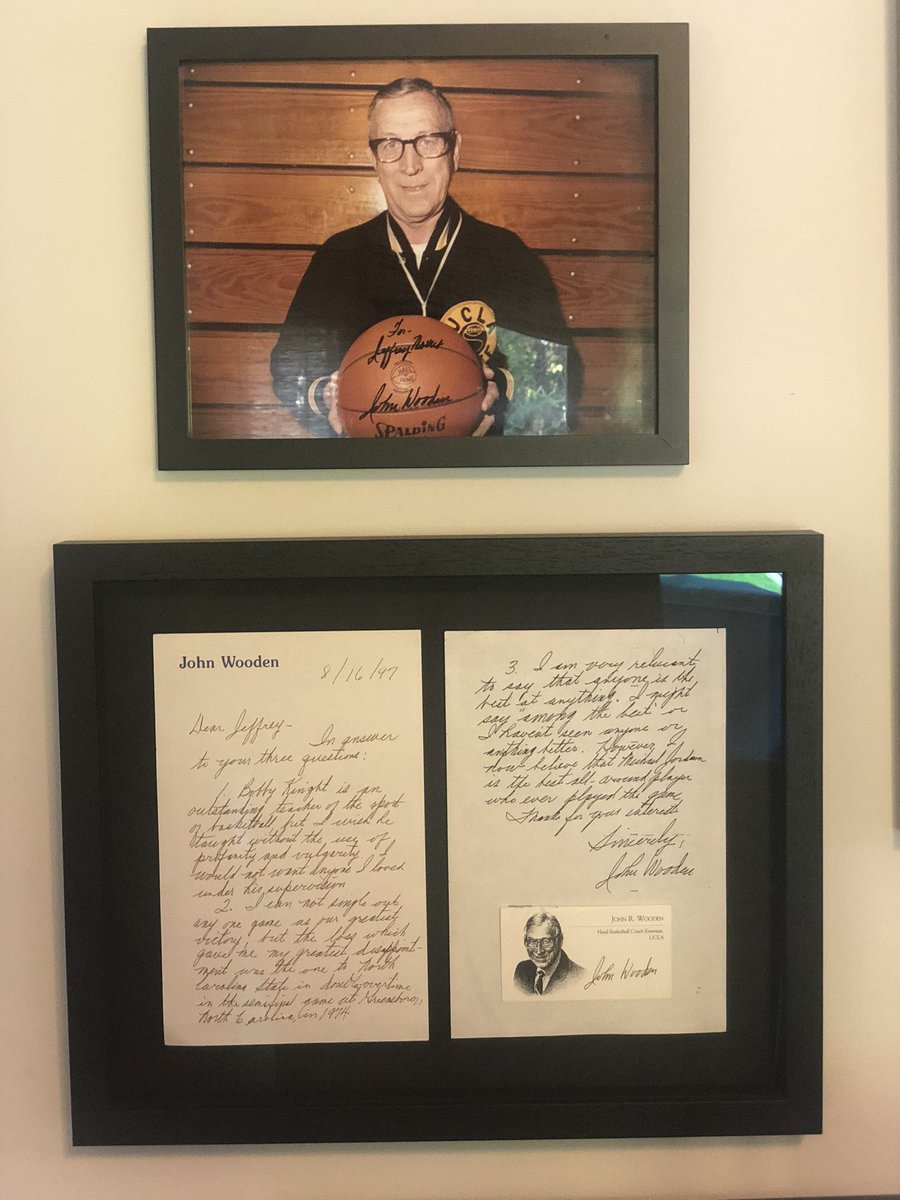 UCLA
For-
Jeffrey
John Wooden
SPALDING
John Wooden
8/16/97
Dear Jeffrey-
In answer
to your three questions:
1. Bobby Knight is an
outstanding teacher of the sport
of basketball but I wish he
taught without the use of
profanity and vulgarity. I
would not want anyone I loved
under his supervision
2. I can not single out
any one game as our greatest
victory, but the loss which
gave me my greatest disappoint-
ment was the one to North
Carolina State in double overtime
in the semifinal game at Greensboro,
North Carolina, in 1974
3. I am very reluctant
to say that anyone is the
best at anything. I might
say "among the best" or
I haven't seen anyone or
anything better. However, I
now believe that Michael Jordan
is the best all-around player
who ever played the game
Thanks for your interest
Sincerely,
John Wooden
JOHN R. WOODEN
Head Basketball Coach Emeritus,
UCLA
John Wooden